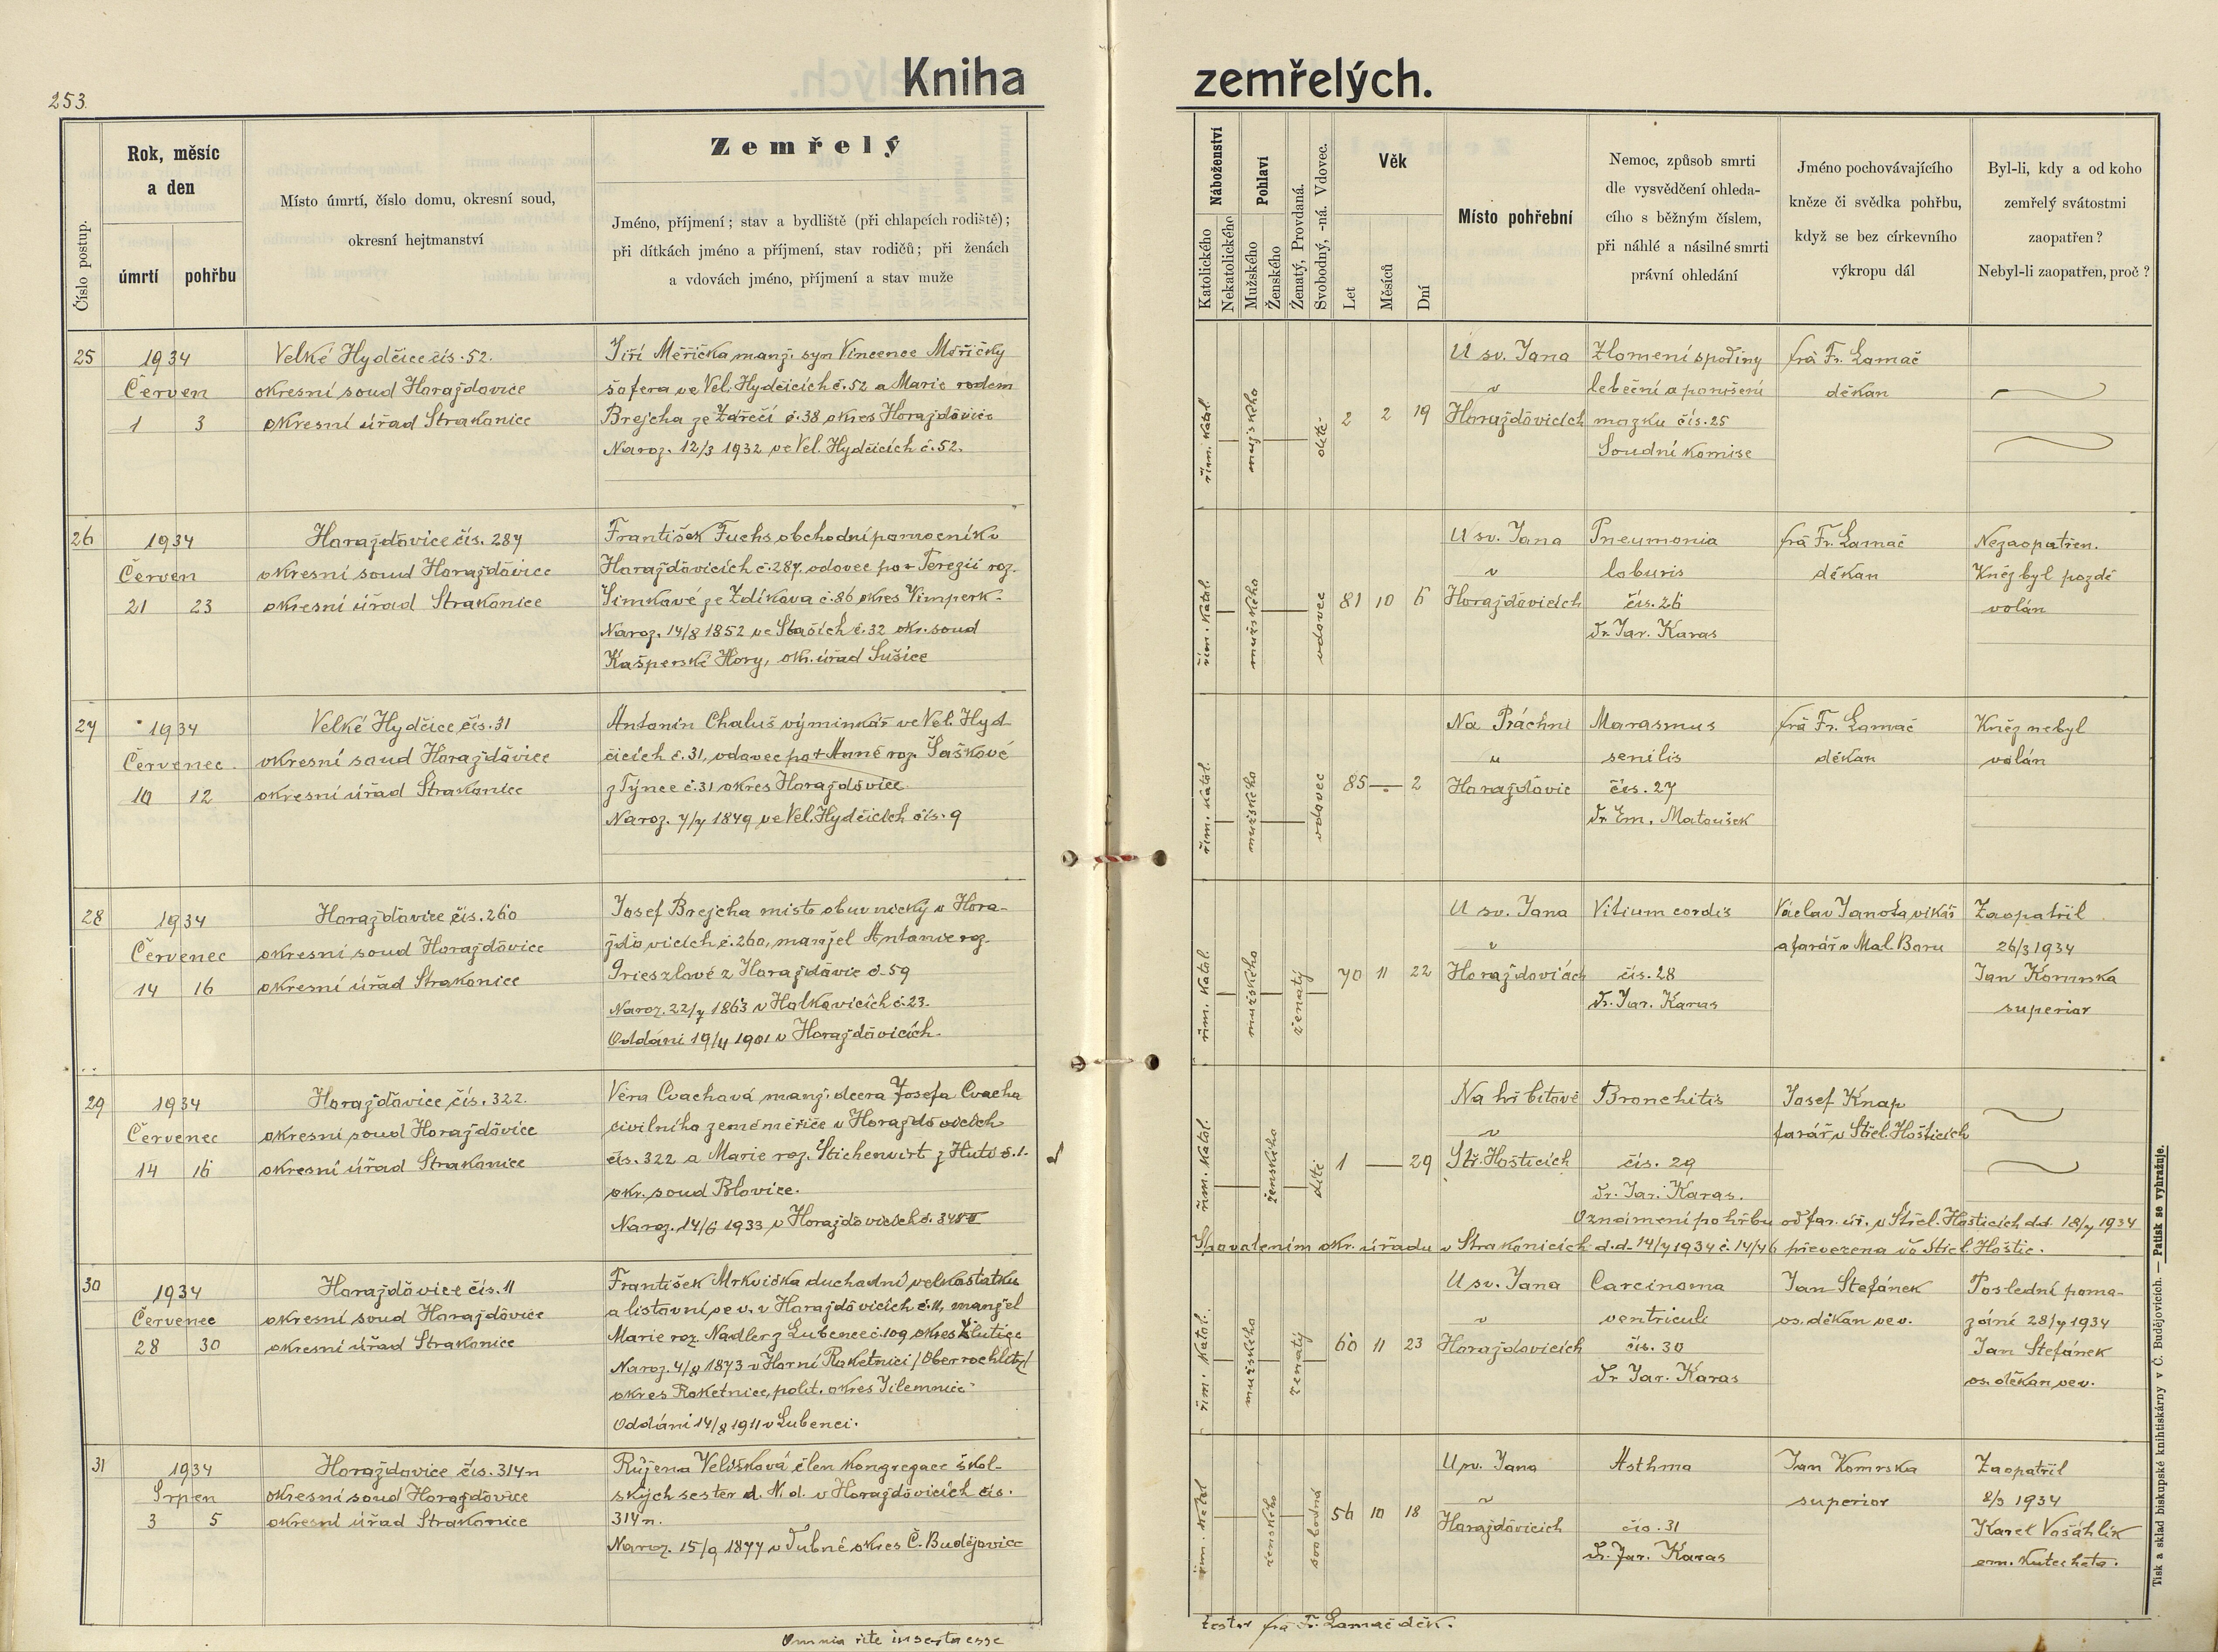 253.
Kniha zemřelých.
Číslo postup.
Rok, měsíc
a den
úmrtí
pohřbu
Místo úmrtí, číslo domu, okresní soud,
okresní hejtmanství
Zemřelý
Jméno, příjmení; stav a bydliště (při chlapcích rodiště);
při dítkách jméno a příjmení, stav rodičů; při ženách
a vdovách jméno, příjmení a stav muže
Náboženství
Katolického
Nekatolického
Pohlaví
Mužského
Ženského
Ženatý, Provdaná.
Svobodný, -ná. Vdovec.
Věk
Let
Měsíců
Dní
Místo pohřební
Nemoc, způsob smrti
dle vysvědčení ohleda-
cího s běžným číslem,
při náhlé a násilné smrti
právní ohledání
Jméno pochovávajícího
kněze či svědka pohřbu,
když se bez církevního
výkropu dál
Byl-li, kdy a od koho
zemřelý svátostmi
zaopatřen?
Nebyl-li zaopatřen, proč?
25
1934
Červen
1 3
Velké Hydčice čís. 52.
okresní soud Horažďovice
okresní úřad Strakonice
Jiří Měřička manž. syn Vincence Měřičky
šofera ve Vel. Hydčicích č. 52 a Marie rodem
Brejcha ze Zářečí č. 38 okres Horažďovice
Naroz. 12/3 1932 ve Vel. Hydčicích č. 52.
řím. katol.
mužského
dítě
2 2 19
U sv. Jana
v
Horažďovicích
Zlomení spodiny
lebeční a porušení
mozku čís. 25
Soudní komise
frá Fr. Lamač
děkan
26
1934
Červen
21 23
Horažďovice čís. 287
okresní soud Horažďovice
okresní úřad Strakonice
František Fuchs obchodní pomocník v
Horažďovicích č. 287. vdovec po + Terezii roz.
Šimkové ze Zdíkova č. 86 okres Vimperk.
Naroz. 14/8 1852 ve Staších č. 32 okr. soud
Kašperské Hory, okr. úřad Sušice
řím. katol.
mužského
vdovec
81 10 6
U sv. Jana
v
Horažďovicích
Pneumonia
loburis
čís. 26
Dr. Jar. Karas
frá Fr. Lamač
děkan
Nezaopatřen.
Kněz byl pozdě
volán
27
1934
Červenec
10 12
Velké Hydčice čís. 31
okresní soud Horažďovice
okresní úřad Strakonice
Antonín Chaluš výminkář ve Vel. Hyd
čicích č. 31, vdovec po + Anně roz. Šaškové
z Týnce č. 31 okres Horažďovice
Naroz. 7/7 1849 ve Vel. Hydčicích čís. 9
řím. katol.
mužského
vdovec
85 — 2
Na Práchni
u
Horažďovic
Marasmus
senilis
čís. 27
Dr. Em. Matoušek
frá Fr. Lamač
děkan
Kněz nebyl
volán
28
1934
Červenec
14 16
Horažďovice čís. 260
okresní soud Horažďovice
okresní úřad Strakonice
Josef Brejcha mistr obuvnický v Hora-
žďovicích č. 260, manžel Antonie roz.
Prieszlové z Horažďovic č. 59
Naroz. 22/7 1863 v Holkovicích č. 23.
Oddáni 19/11 1901 v Horažďovicích.
řím. katol.
mužského
ženatý
70 11 22
U sv. Jana
v
Horažďovicích
Vitium cordis
čís. 28
Dr. Jar. Karas
Václav Janota vikář
a farář v Mal. Boru
Zaopatřil
26/3 1934
Jan Komrska
superior
29
1934
Červenec
14 16
Horažďovice čís. 322.
okresní soud Horažďovice
okresní úřad Strakonice
Věra Cvachová manž. dcera Josefa Cvacha
civilního zeměměřiče v Horažďovicích
čís. 322 a Marie roz. Stichenwirt z Hutě č. 1.
okr. soud Blovice.
Naroz. 14/6 1933 v Horažďovicích č. 348 II
řím. katol.
ženského
dítě
1 — 29
Na hřbitově
v
Stř. Hošticích
Bronchitis
čís. 29
Dr. Jar. Karas.
Josef Knap
farář v Střel. Hošticích
Oznámení pohřbu od far. úř. v Střel. Hošticích d.d. 18/7 1934
S povolením okr. úřadu v Strakonicích d.d. 14/7 1934 č. 14/46 převezena do Střel. Hoštic.
30
1934
Červenec
28 30
Horažďovice čís. 11
okresní soud Horažďovice
okresní úřad Strakonice
František Mrkvička důchodní velkostatku
a listovní ve v. v Horažďovicích č. 11, manžel
Marie roz. Nadler z Lubence č. 109 okres Žlutice
Naroz. 4/8 1873 v Horní Roketnici /Oberrochlitz/
okres Roketnice, polit. okres Jilemnice
Oddáni 14/8 1911 v Lubenci.
řím. katol.
mužského
ženatý
60 11 23
U sv. Jana
v
Horažďovicích
Carcinoma
ventriculi
čís. 30
Dr. Jar. Karas
Jan Štefánek
os. děkan ve v.
Poslední poma-
zání 28/7 1934
Jan Štefánek
os. děkan ve v.
31
1934
Srpen
3 5
Horažďovice čís. 314n
okresní soud Horažďovice
okresní úřad Strakonice
Růžena Velíšková člen kongregace škol-
ských sester d. N. d. v Horažďovicích čís.
314n.
Naroz. 15/9 1877 v Dubné okres Č. Budějovice
řím. katol
ženského
svobodná
56 10 18
U sv. Jana
v
Horažďovicích
Asthma
čís. 31
Dr. Jar. Karas
Jan Komrska
superior
Zaopatřil
2/3 1934
Karel Vošáhlík
em. katecheta.
Omnia rite inserta esse
testor frá Fr. Lamač děk.
Tisk a sklad biskupské knihtiskárny v Č. Budějovicích. — Patisk se vyhražuje.